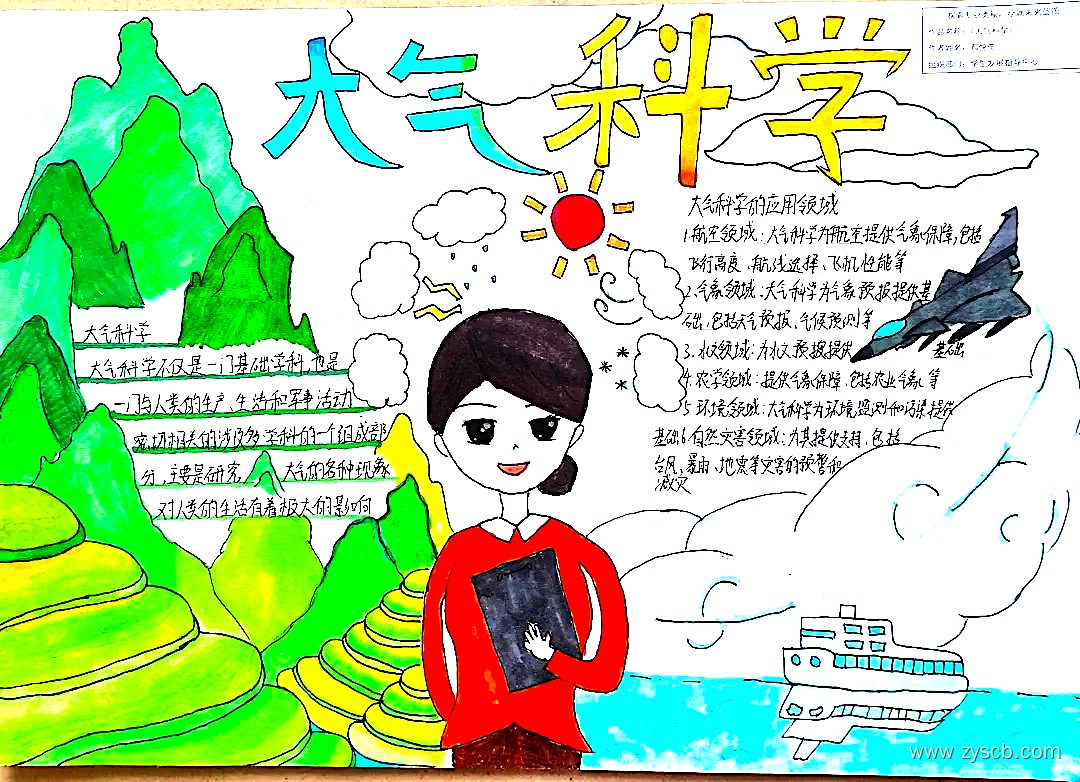 大气科学
大气科学
大气科学不仅是一门基础学科,也是
一门与人类的生产、生活和军事活动
密切相关的涉及多学科的一个组成部
分,主要是研究大气的各种现象
对人类的生活有着极大的影响
大气科学的应用领域
1.航空领域:大气科学为航空提供气象保障,包括
飞行高度、航线选择、飞机性能等
2.气象领域:大气科学为气象预报提供基
础,包括天气预报、气候预测等
3.水文领域:为水文预报提供基础
4.农学领域:提供气象保障,包括农业气象等
5.环境领域:大气科学为环境监测和评集提供
基础6.自然灾害领域:为其提供支持,包括
台风,暴雨、地震等灾害的预警和
减灾
www.zyscb.com